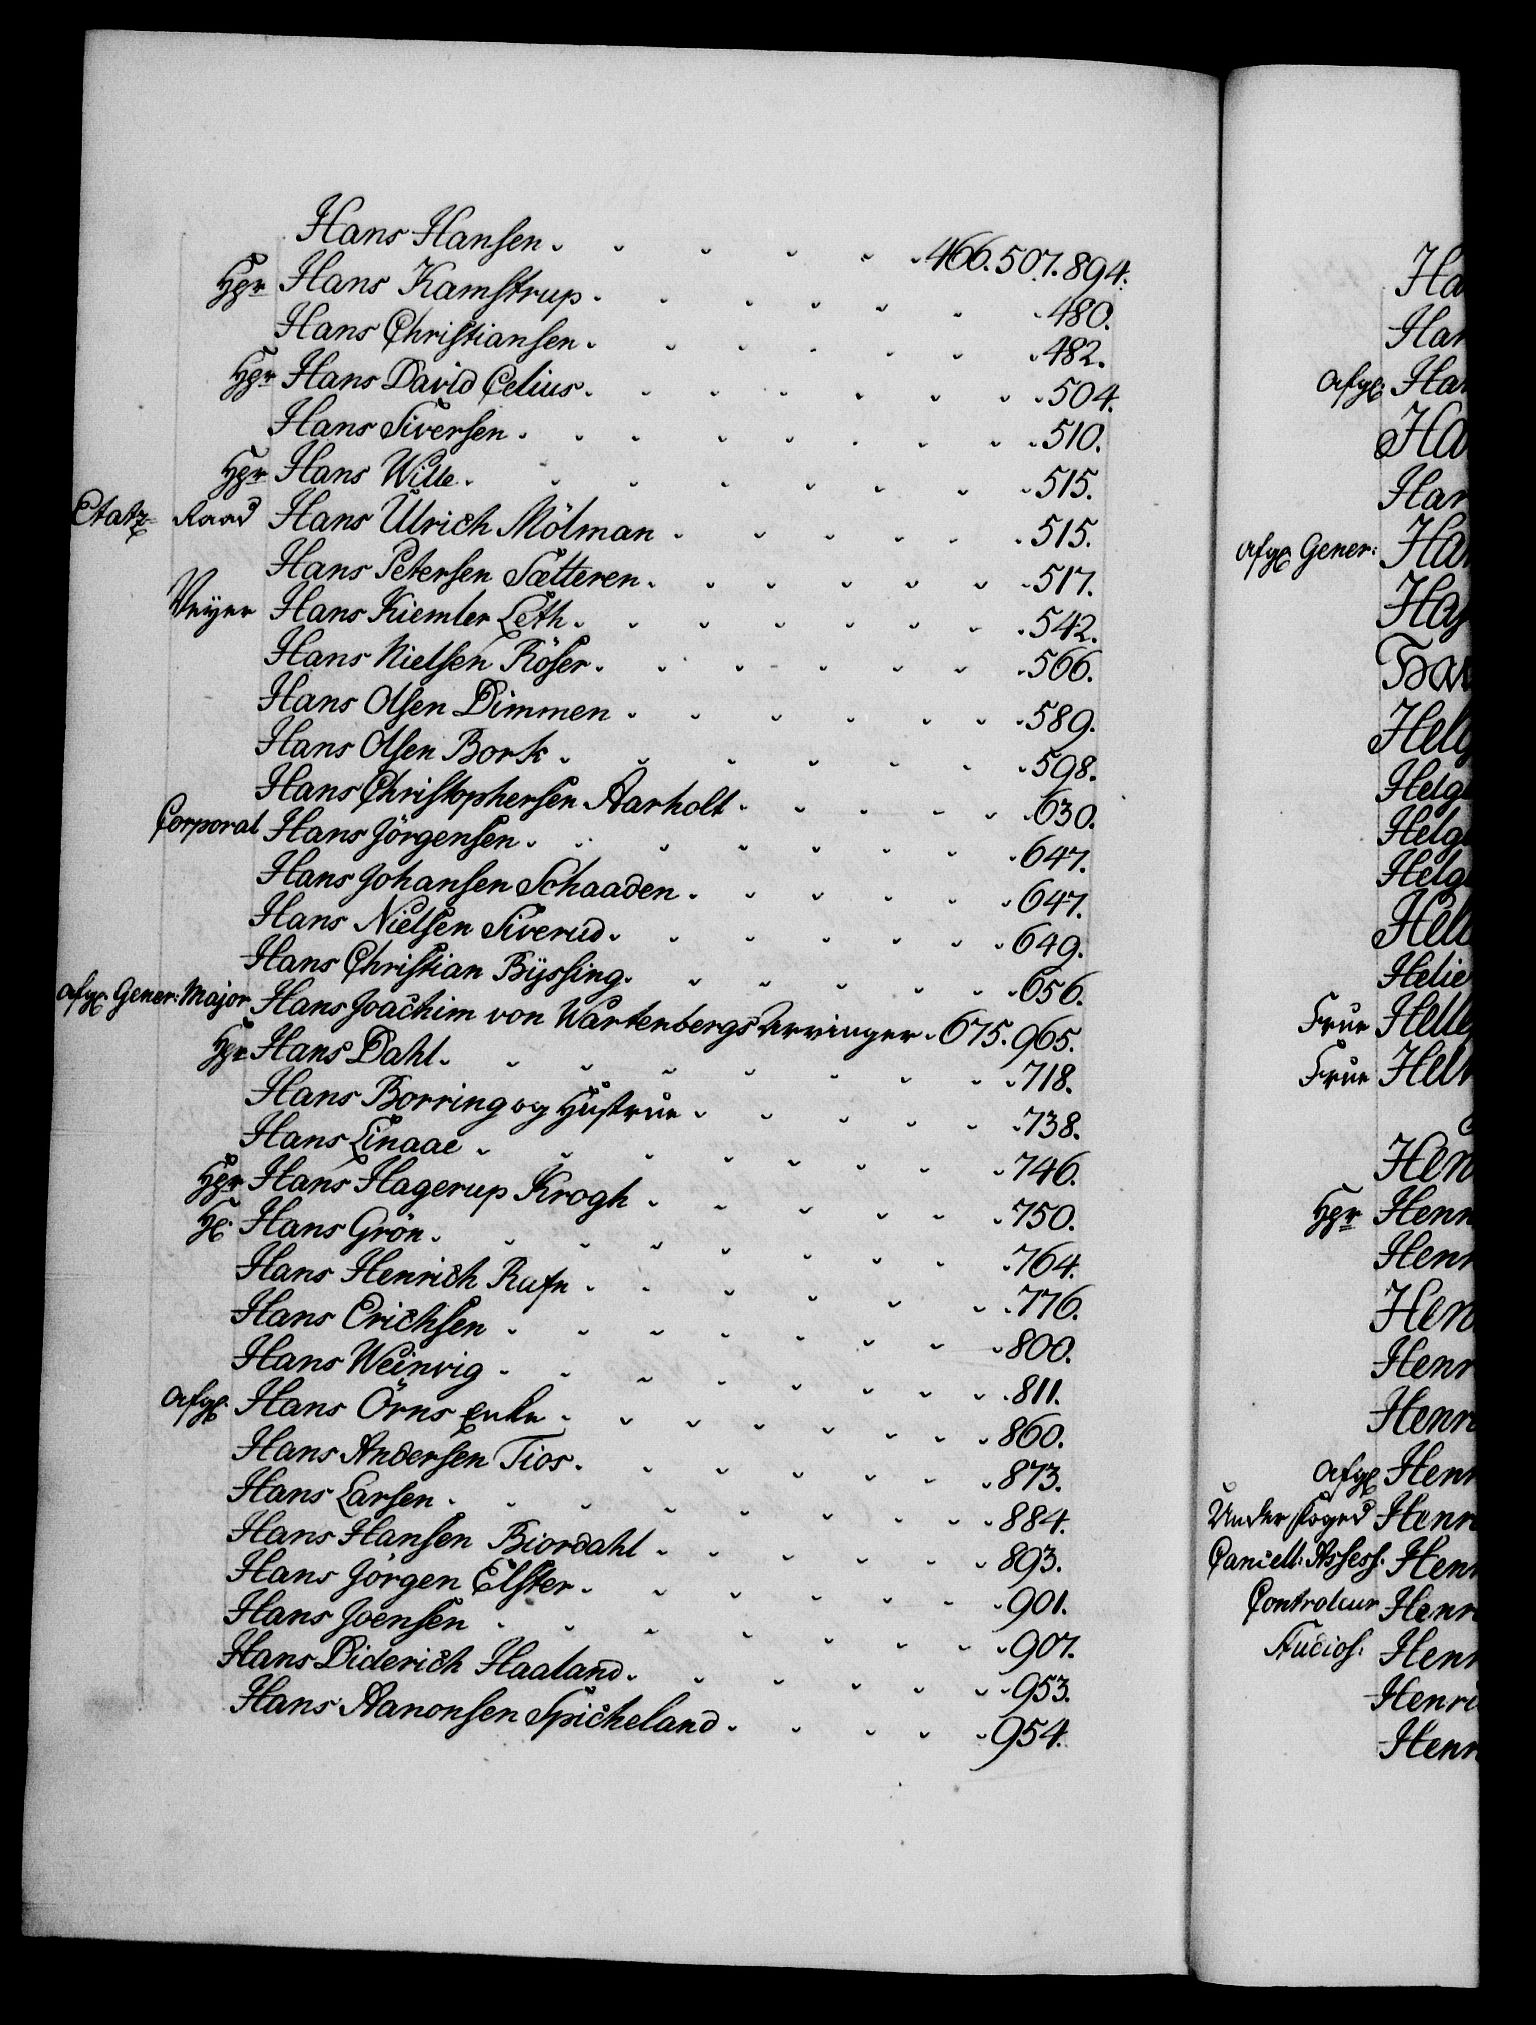 Hans Hansen. 466. 507. 894.
Hgr Hans Kamstrup. 480.
Hans Christiansen. 482.
Hgr Hans David Celius. 504.
Hans Siversen. 510.
Hgr Hans Wille. 515.
Etatz Raad Hans Ulrich Mölman 515.
Hans Petersen Sætteren. 517.
Veyer Hans Kiemler Leth. 542.
Hans Nielsen Röser. 566.
Hans Olsen Dimmen 589.
Hans Olsen Bork. 598.
Hans Christophersen Aarholt 630.
Corporal Hans Jörgensen. 647.
Hans Johansen Schaaden. 647.
Hans Nielsen Siverud. 649.
Hans Christian Byssing. 656.
afg: Gener: Major Hans Joachim von Wartenbergs Arvinger. 675. 965.
Hgr Hans Dahl. 718.
Hans Borring og Hustrue. 738.
Hans Linaae 746.
Hgr Hans Hagerup Krogh 750.
Hr: Hans Grön. 764.
Hans Henrich Rafn 776.
Hans Erichsen 800.
Hans Weinvig 811.
afg: Hans Örns Enke 860.
Hans Andersen Tios. 873.
Hans Larsen 884.
Hans Hansen Biordahl 893.
Hans Jörgen Elster. 901.
Hans Joensen 907.
Hans Diderich Haaland. 953.
Hans Aanonsen Spicheland 954.
Ha
Han
afg: Han
Ha
Han
afg: Gener: Han
Helg
Helg
Helg
Helg
Helie
Frue Helle
Frue Hel
Hen
Hgr Henr
Henr
Hen
Henr
Henr
afg: Henr
Under foged Henr
Cancell: Assess: Henr
Controleur Henr
Studios: Henr
Henri
Henr